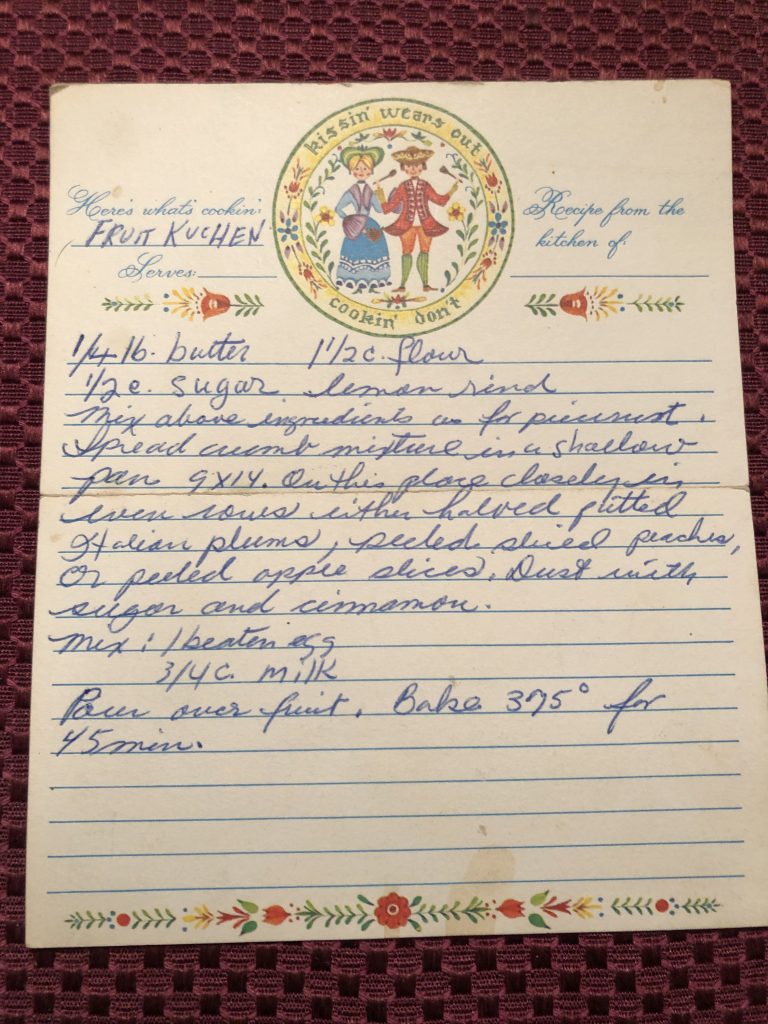 kissin' wears out
cookin' don't
Here's what's cookin':
FRUIT KUCHEN
Serves:
Recipe from the
kitchen of:
1/4 lb. butter 1 1/2 c. flour
1/2 c. sugar lemon rind
Mix above ingredients as for piecrust.
Spread crumb mixture in a shallow
pan 9X14. On this place closely in
even rows either halved pitted
Italian plums, peeled sliced peaches,
or peeled apple slices. Dust with
sugar and cinnamon.
Mix: 1 beaten egg
3/4 c. milk
Pour over fruit. Bake 375° for
45 min.